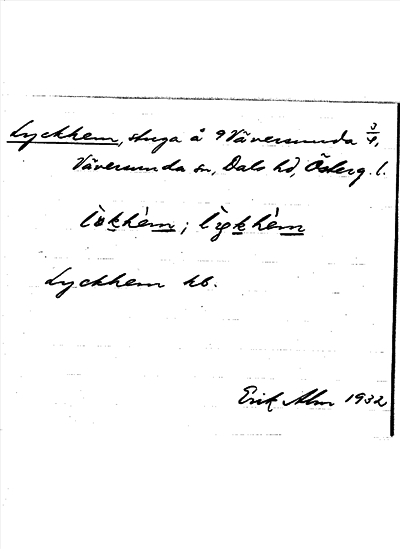 Lyckhem, stuga å 9 Väversunda 3/4,
Väversunda sn, Dals hd, Österg. l.
Lyckhem kb.
Erik Alm 1932